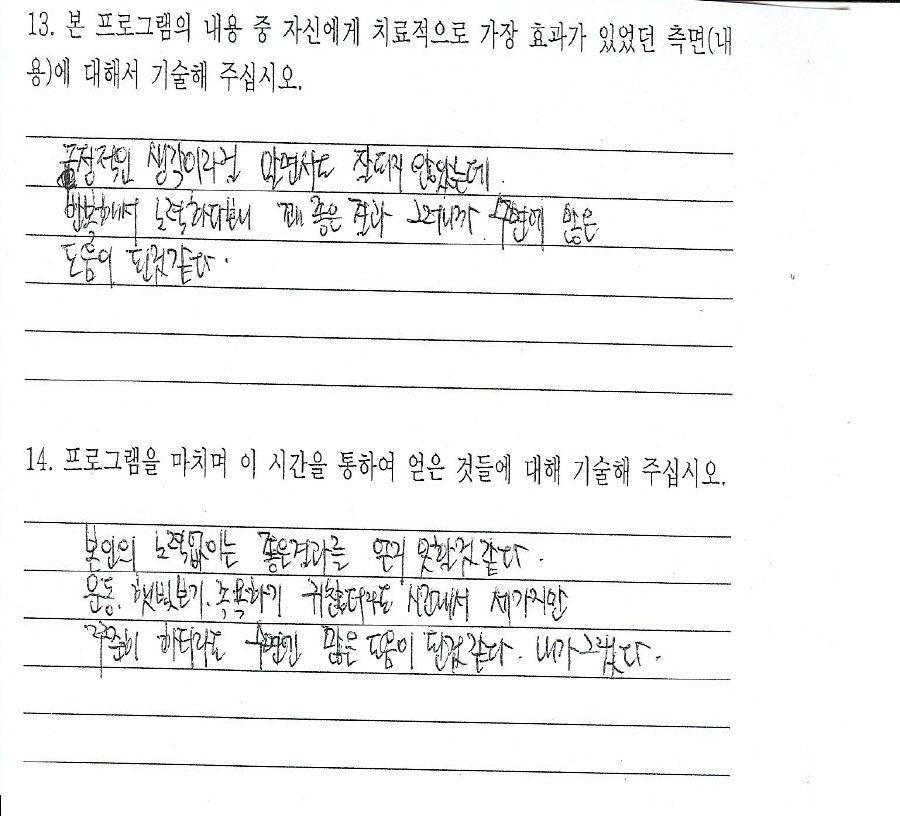 13. 본 프로그램의 내용 중 자신에게 치료적으로 가장 효과가 있었던 측면(내
용)에 대해서 기술해 주십시오.
긍정적인 생각이라걸 알면서도 잘되지 않았는데.
반복해서 노력하다보니 꽤 좋은 결과 그러니까 수면에 많은
도움이 된것같다.
14. 프로그램을 마치며 이 시간을 통하여 얻은 것들에 대해 기술해 주십시오.
본인의 노력없이는 좋은결과를 얻지 못할것 같다.
운동. 햇빛보기. 족욕하기 귀찮더라도 시간내서 세가지만
꾸준히 하더라도 수면엔 많은 도움이 된것 같다. 내가 그랬다.